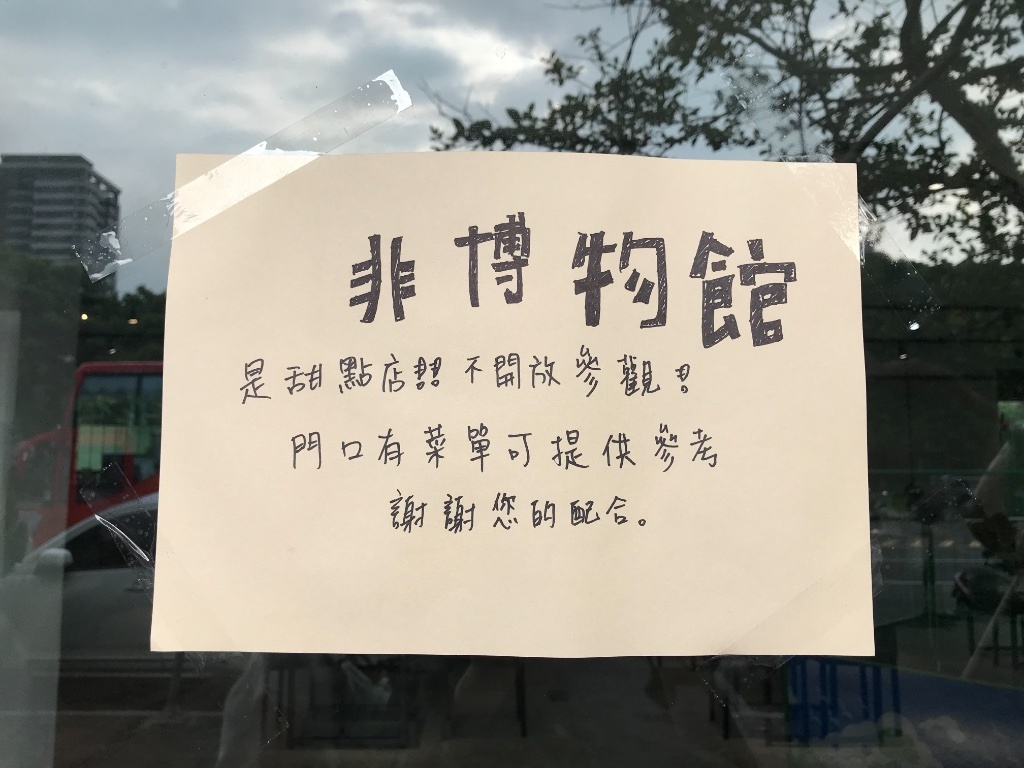 非博物館
是甜點店!!! 不開放參觀!
門口有菜單可提供參考
謝謝您的配合。